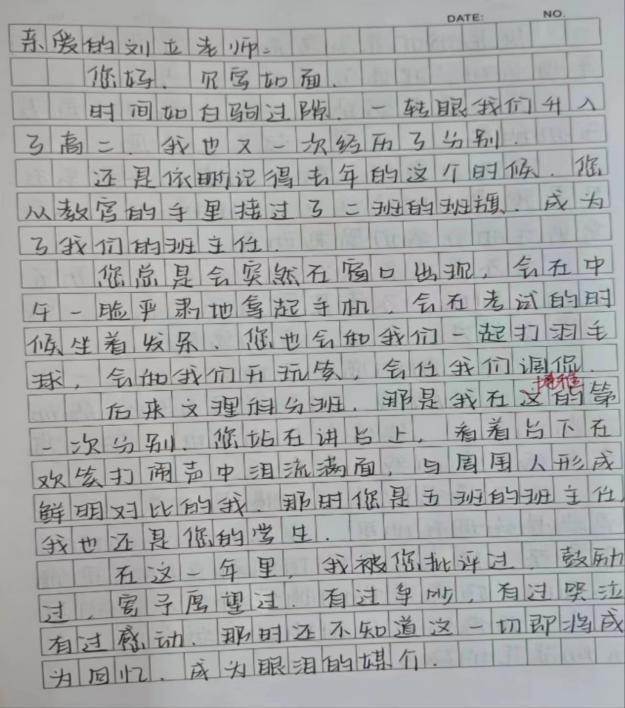 DATE: NO.
亲爱的刘立老师:
您好,见字如面。
时间如白驹过隙,一转眼我们升入
了高二,我也又一次经历了分别。
还是依晰记得去年的这个时候,您
从教官的手里接过了二班的班旗,成为
了我们的班主任。
您总是会突然在窗口出现,会在中
午一脸严肃地拿起手机,会在考试的时
候坐着发呆,您也会和我们一起打羽毛
球,会和我们开玩笑,会任我们调侃。
后来文理科分班,那是我在这的第
一次分别。您站在讲台上,看着台下在
欢笑打闹声中泪流满面,与周围人形成
鲜明对比的我。那时您是五班的班主任,
我也还是您的学生。
在这一年里,我被您批评过,鼓励
过,寄予厚望过。有过争吵,有过哭泣
有过感动。那时还不知道这一切即将成
为回忆,成为眼泪的媒介。